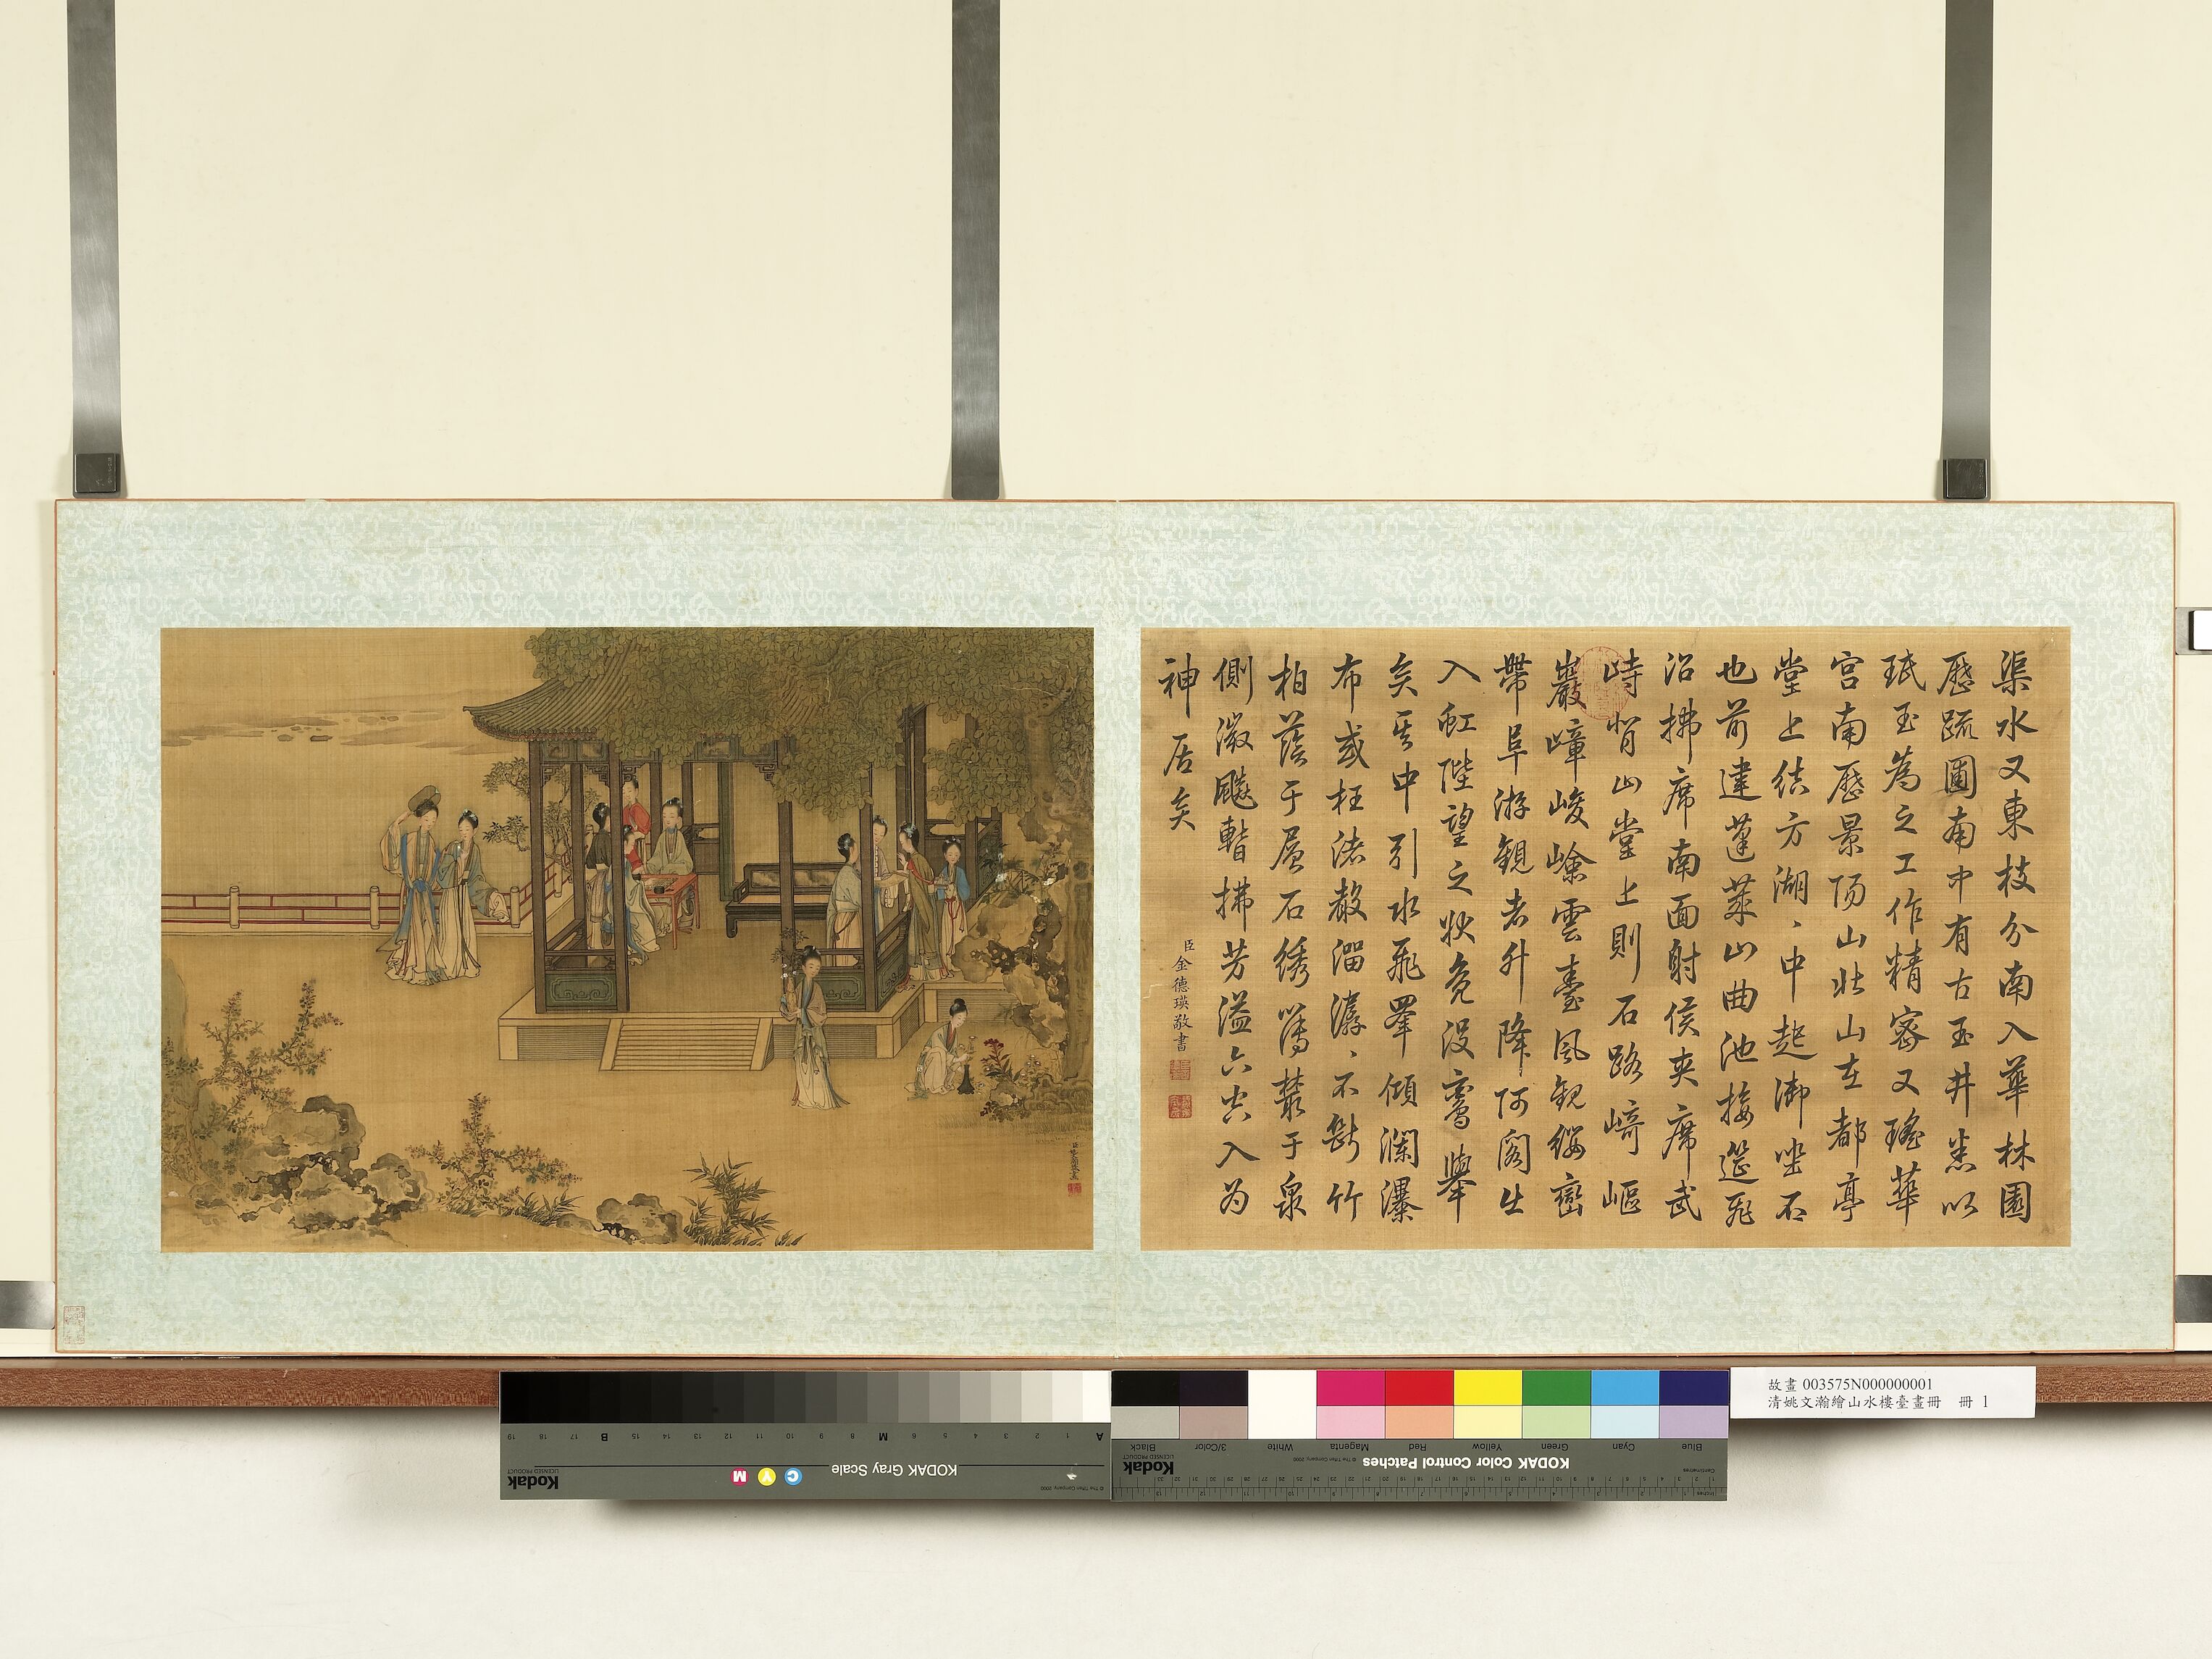 渠水又東枝分南入華林園
歷疏圃南中有古玉井悉以
珉玉為之工作精密又瑤華
宮南歷景陽山北山在都亭
堂上結方湖、中起御坐石
也前建蓬萊山曲池接筵飛
沼拂席南面射侯夾席武
峙背山堂上則石路崎嶇
巖嶂峻嶮雲臺風觀纓巒
帶阜游觀者升降阿閣出
入虹陛望之狀鳧沒鸞舉
矣其中引水飛睪傾瀾瀑
布或枉渚聲溜潺、不斷竹
柏蔭于層石繡薄叢于泉
側微飈暫拂芳溢六空入为
神居矣
臣金德瑛敬書
故畫 003575N000000001
清姚文瀚繪山水樓臺畫冊 冊 1
19 18 17 B 15 14 13 12 11 10 9 8 M 6 5 4 3 2 1 A
Kodak
LICENSED PRODUCT
M Y C
KODAK Gray Scale
© The Tiffen Company, 2000
Black 3/Color White Magenta Red Yellow Green Cyan Blue
Kodak
LICENSED PRODUCT
KODAK Color Control Patches
© The Tiffen Company, 2000
Centimetres
Inches